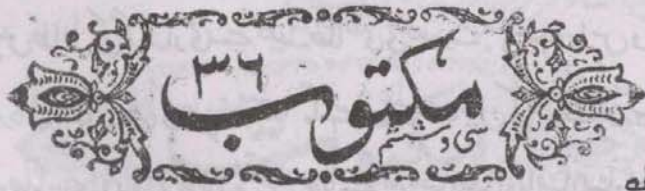 مکتوب ۳۶
سی و ششم